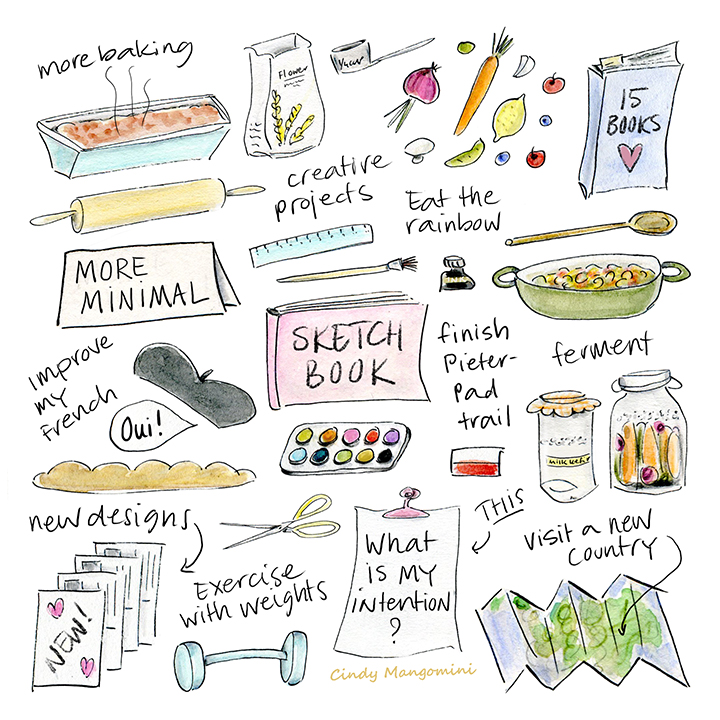 more baking
Flower
Sugar
15
BOOKS
creative
projects
Eat the
rainbow
MORE
MINIMAL
SKETCH
BOOK
Improve
my
french
Oui!
finish
Pieter-
Pad
trail
ferment
new designs
NEW!
Exercise
with weights
What
is my
intention
?
THIS
visit a new
country
Cindy Mangomini